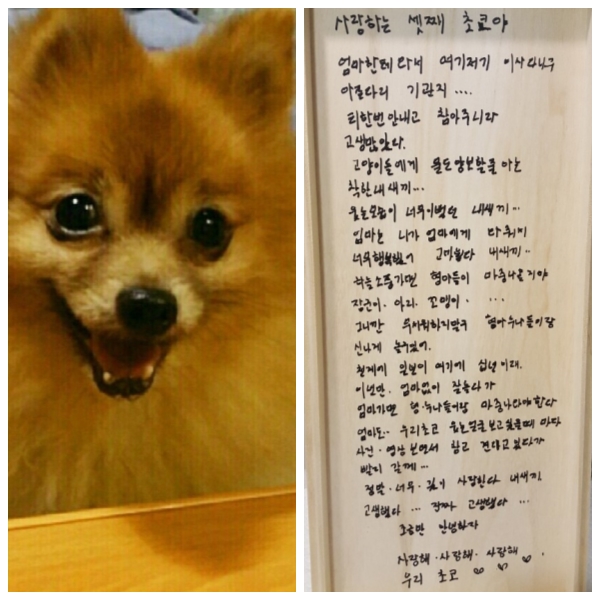 사랑하는 셋째 초코야
엄마한테 와서 여기저기 이사다니구
아픈다리 기관지 ....
티한번 안내고 참아주니라
고생많았다.
고양이들에게 물도 양보할줄 아는
착한내새끼...
웃는모습이 너무이뻤던 내새끼...
엄마는 니가 엄마에게 와줘서
너무행복했어 고마웠다 내새끼..
하늘소풍가면 형아들이 마중나올거야
장군이. 아리. 꼬맹이. ...
그니깐 무서워하지말구 형아누나들이랑
신나게 놀구있어.
천계에 일년이 여기에 십년이래.
이년만. 엄마없이 잘놀다가
엄마가면 형.누나들이랑 마중나와야한다
엄마도.. 우리초코 웃는모습보고싶을때마다
사진.영상 보면서 참고 견디고 있다가
빨리 갈께...
정말.너무.많이 사랑한다 내새끼
고생했다 ... 진짜 고생했다 ...
조금만 안녕하자
사랑해.사랑해. 사랑해
우리 초코